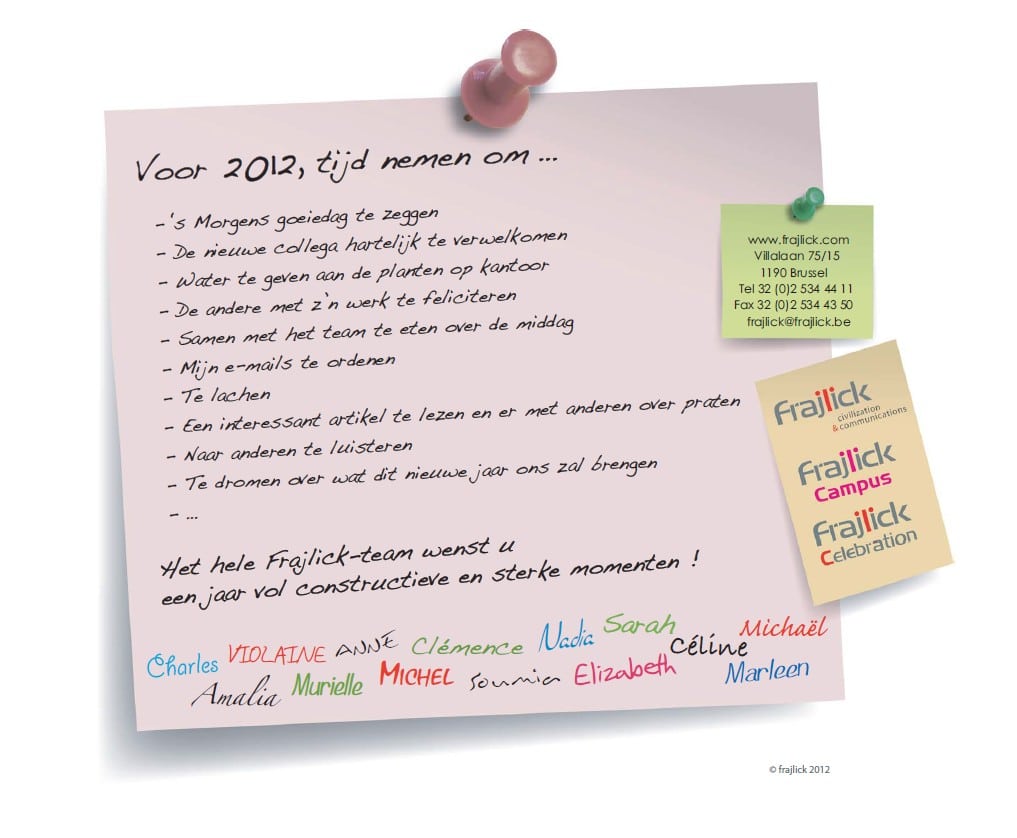 Voor 2012, tijd nemen om ...
-'s Morgens goeiedag te zeggen
- De nieuwe collega hartelijk te verwelkomen
- Water te geven aan de planten op kantoor
- De andere met z'n werk te feliciteren
- Samen met het team te eten over de middag
- Mijn e-mails te ordenen
- Te lachen
- Een interessant artikel te lezen en er met anderen over praten
- Naar anderen te luisteren
- Te dromen over wat dit nieuwe jaar ons zal brengen
- ...
Het hele Frajlick-team wenst u
een jaar vol constructieve en sterke momenten !
Charles VIOLAINE ANNE Clémence Nadia Sarah Céline Michaël
Amalia Murielle MICHEL Soumia Elizabeth Marleen
www.frajlick.com
Villalaan 75/15
1190 Brussel
Tel 32 (0)2 534 44 11
Fax 32 (0)2 534 43 50
frajlick@frajlick.be
Frajlick
civilization
& communications
Frajlick
Campus
Frajlick
Celebration
© frajlick 2012